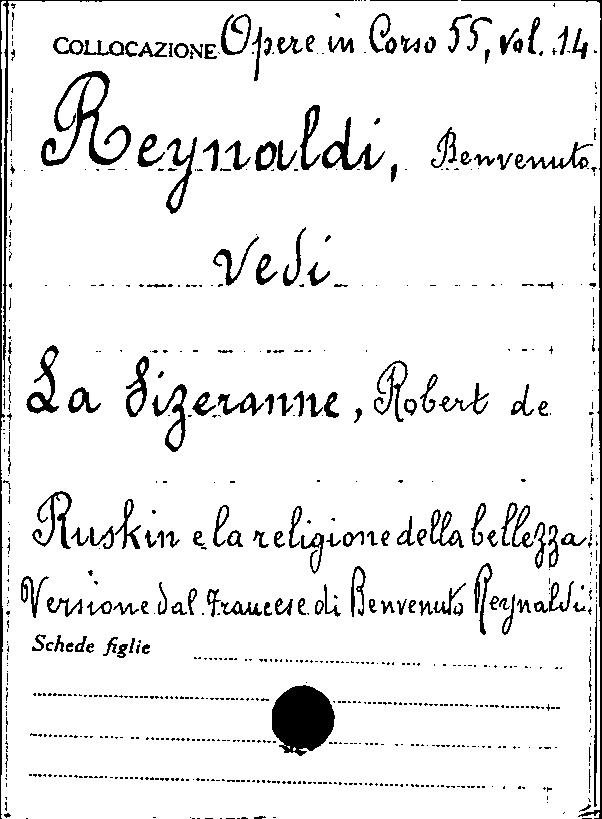 COLLOCAZIONE Opere in Corso 55, vol. 14
Reynaldi, Benvenuto
Vedi
La Sizeranne, Robert de
Ruskin e la religione della bellezza
Versione dal francese di Benvenuto Reynaldi.
Schede figlie